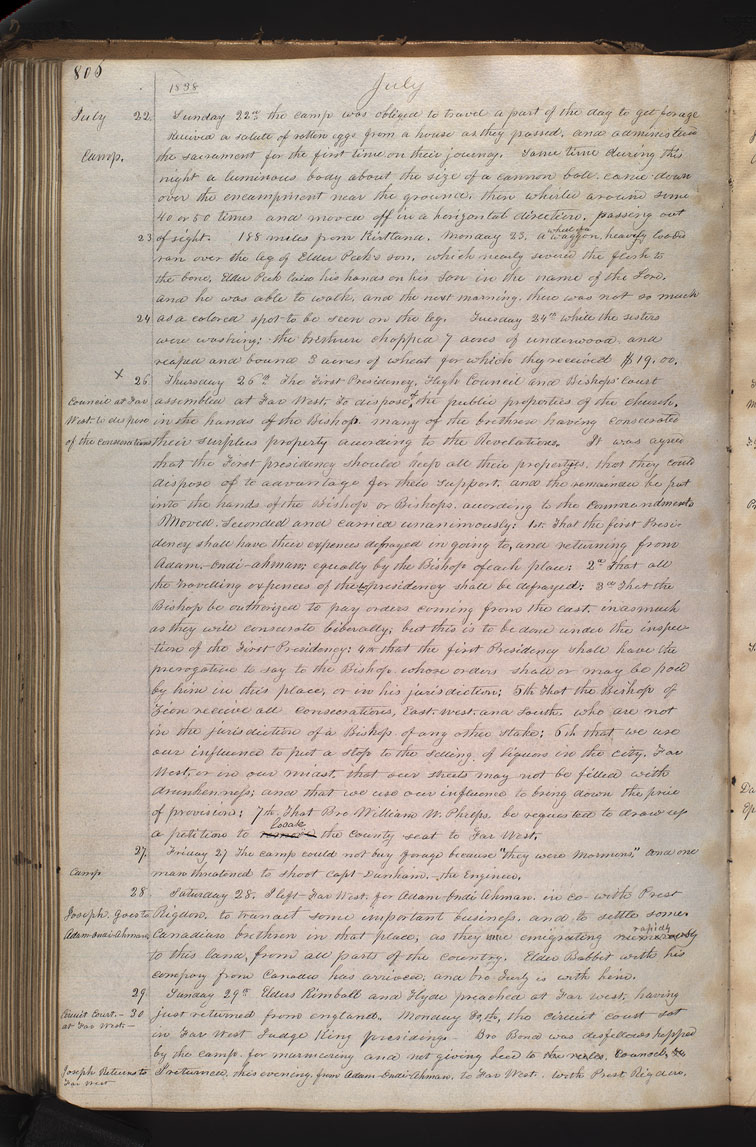 806
1838 July
July 22 Sunday 22nd the camp was obliged to travel a part of the day to get forage
received a salute of rotten eggs from a house as they passed, and administered
Camp. the sacrament for the first time on their journey. Some time during this
night a luminous body about the size of a cannon ball came down
over the encampment near the ground, then whirled around some
40 or 50 times and moved off in a horizontal direction, passing out
23 of sight. 188 miles from Kirtland. Monday 23. a wheel of a waggon, heavily loaded
ran over the leg of Elder Peek's son, which nearly severed the flesh to
the bone, Elder Peek laid his hands on his Son in the name of the Lord,
and he was able to walk, and the next morning, there was not so much
24 as a colored spot to be seen on the leg. Tuesday 24th while the sisters
were washing; the brethren chopped 7 acres of underwood, and
reaped and bound 3 acres of wheat for which they received $19.00.
X 26 Thursday 26th The First Presidency, High Council and Bishops' Court
Council at Far assembled at Far West, to dispose of the public properties of the church,
West to dispose in the hands of the Bishop. many of the brethren having consecrated
of the consecrations their surplus property according to the Revelations. It was agreed
that the First presidency should keep all their properties, that they could
dispose of to advantage for their support, and the remainder be put
into the hands of the Bishop or Bishops, according to the Commandments
Moved, Seconded and carried unanimously: 1st. That the first Presi-
dency shall have their expences defrayed in going to, and returning from
Adam-Ondi-Ahman; equally by the Bishop of each place; 2nd That all
the travelling expences of the presidency shall be defrayed; 3rd That the
Bishop be authorized to pay orders coming from the east, inasmuch
as they will consecrate liberally; but this is to be done under the inspec-
tion of the First Presidency; 4th that the first Presidency shall have the
prerogative to say to the Bishop whose orders shall or may be paid
by him in this place, or in his jurisdiction; 5th That the Bishop of
Zion receive all consecrations, East, West, and South, who are not
in the jurisdiction of a Bishop of any other Stake; 6th that we use
our influence to put a stop to the selling of liquors in the city, Far
West, or in our midst, that our streets may not be filled with
drunkenness; and that we use our influence to bring down the price
of provisions; 7th. That Bro William W. Phelps, be requested to draw up
a petition to locate the County seat to Far West.
27. Friday 27 The camp could not buy forage because "they were Mormons," and one
Camp man threatened to shoot Capt Dunham,—the Engineer.
28 Saturday 28. I left Far West for Adam-Ondi-Ahman, in co with Prest
Joseph goes to Rigdon, to transact some important business, and to settle some
Adam-Ondi-Ahman, Canadian brethren in that place, as they are emigrating rapidly
to this land, from all parts of the country. Elder Babbit with his
company from Canada has arrived, and bro Turly is with him.
29 Sunday 29th Elders Kimball and Hyde preached at Far West, having
Circuit Court.— 30 just returned from england. Monday 30th, the circuit court sat
at Far West.— in Far West Judge King presiding.— Bro Bond was disfellowshipped
by the camp for murmuring and not giving heed to Councils, &c
Joseph Returns to I returned, this evening, from Adam-Ondi-Ahman, to Far West. with Prest Rigdon.
Far West